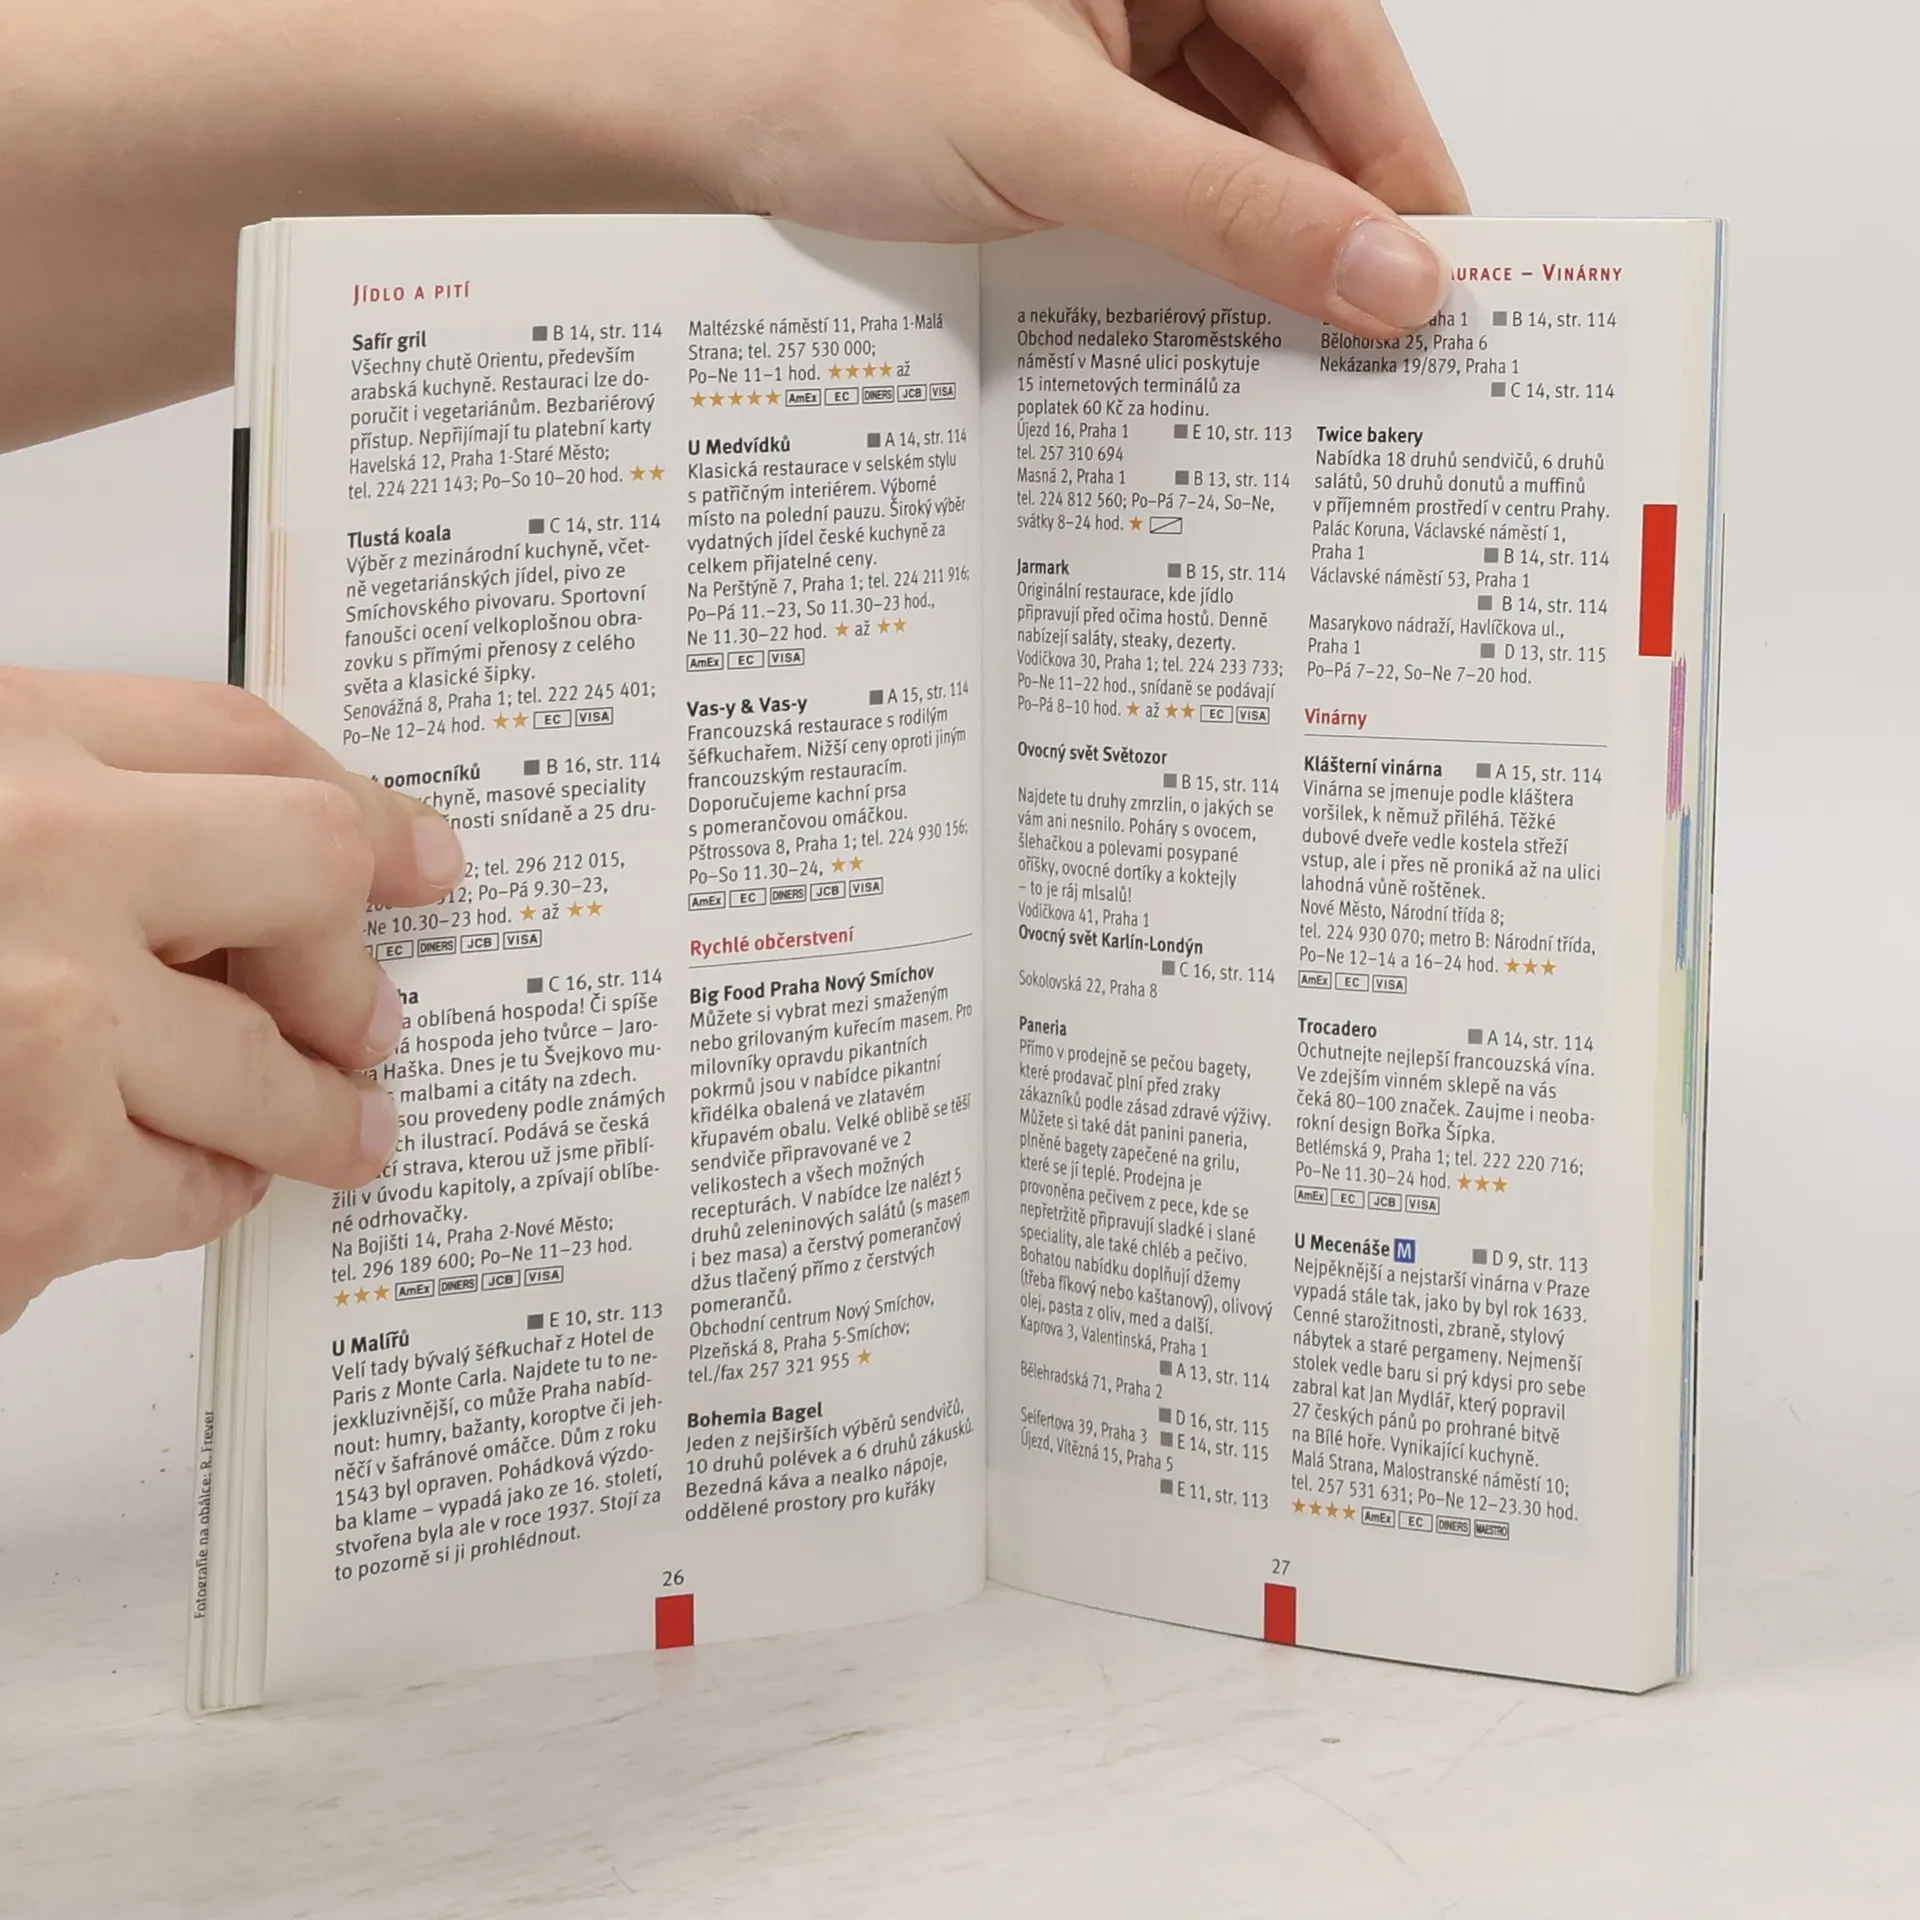 JÍDLO A PITÍ
Safír gril B 14, str. 114
Všechny chutě Orientu, především
arabská kuchyně. Restauraci lze do-
poručit i vegetariánům. Bezbariérový
přístup. Nepřijímají tu platební karty
Havelská 12, Praha 1-Staré Město;
tel. 224 221 143; Po–So 10–20 hod. ★★
Tlustá koala C 14, str. 114
Výběr z mezinárodní kuchyně, včet-
ně vegetariánských jídel, pivo ze
Smíchovského pivovaru. Sportovní
fanoušci ocení velkoplošnou obra-
zovku s přímými přenosy z celého
světa a klasické šipky.
Senovážná 8, Praha 1; tel. 222 245 401;
Po–Ne 12–24 hod. ★★ EC VISA
pomocníků B 16, str. 114
chyně, masové speciality
nosti snídaně a 25 dru-
2; tel. 296 212 015,
312; Po–Pá 9.30–23,
-Ne 10.30–23 hod. ★ až ★★
EC DINERS JCB VISA
ha C 16, str. 114
a oblíbená hospoda! Či spíše
á hospoda jeho tvůrce – Jaro-
a Haška. Dnes je tu Švejkovo mu-
malbami a citáty na zdech.
sou provedeny podle známých
ch ilustrací. Podává se česká
cí strava, kterou už jsme přiblí-
žili v úvodu kapitoly, a zpívají oblíbe-
né odrhovačky.
Na Bojišti 14, Praha 2-Nové Město;
tel. 296 189 600; Po–Ne 11–23 hod.
★★★ AmEx DINERS JCB VISA
U Malířů E 10, str. 113
Velí tady bývalý šéfkuchař z Hotel de
Paris z Monte Carla. Najdete tu to ne-
jexkluzivnější, co může Praha nabíd-
nout: humry, bažanty, koroptve či jeh-
něčí v šafránové omáčce. Dům z roku
1543 byl opraven. Pohádková výzdo-
ba klame – vypadá jako ze 16. století,
stvořena byla ale v roce 1937. Stojí za
to pozorně si ji prohlédnout.
Maltézské náměstí 11, Praha 1-Malá
Strana; tel. 257 530 000;
Po–Ne 11–1 hod. ★★★★ až
★★★★★ AmEx EC DINERS JCB VISA
U Medvídků A 14, str. 114
Klasická restaurace v selském stylu
s patřičným interiérem. Výborné
místo na polední pauzu. Široký výběr
vydatných jídel české kuchyně za
celkem přijatelné ceny.
Na Perštýně 7, Praha 1; tel. 224 211 916;
Po–Pá 11.–23, So 11.30–23 hod.,
Ne 11.30–22 hod. ★ až ★★
AmEx EC VISA
Vas-y & Vas-y A 15, str. 114
Francouzská restaurace s rodilým
šéfkuchařem. Nižší ceny oproti jiným
francouzským restauracím.
Doporučujeme kachní prsa
s pomerančovou omáčkou.
Pštrossova 8, Praha 1; tel. 224 930 156;
Po–So 11.30–24, ★★
AmEx EC DINERS JCB VISA
Rychlé občerstvení
Big Food Praha Nový Smíchov
Můžete si vybrat mezi smaženým
nebo grilovaným kuřecím masem. Pro
milovníky opravdu pikantních
pokrmů jsou v nabídce pikantní
křidélka obalená ve zlatavém
křupavém obalu. Velké oblibě se těší
sendviče připravované ve 2
velikostech a všech možných
recepturách. V nabídce lze nalézt 5
druhů zeleninových salátů (s masem
i bez masa) a čerstvý pomerančový
džus tlačený přímo z čerstvých
pomerančů.
Obchodní centrum Nový Smíchov,
Plzeňská 8, Praha 5-Smíchov;
tel./fax 257 321 955 ★
Bohemia Bagel
Jeden z nejširších výběrů sendvičů,
10 druhů polévek a 6 druhů zákusků.
Bezedná káva a nealko nápoje,
oddělené prostory pro kuřáky
26
Fotografie na obálce: R. Freyer
URACE – VINÁRNY
a nekuřáky, bezbariérový přístup.
Obchod nedaleko Staroměstského
náměstí v Masné ulici poskytuje
15 internetových terminálů za
poplatek 60 Kč za hodinu.
Újezd 16, Praha 1 E 10, str. 113
tel. 257 310 694
Masná 2, Praha 1 B 13, str. 114
tel. 224 812 560; Po–Pá 7–24, So–Ne,
svátky 8–24 hod. ★
Jarmark B 15, str. 114
Originální restaurace, kde jídlo
připravují před očima hostů. Denně
nabízejí saláty, steaky, dezerty.
Vodičkova 30, Praha 1; tel. 224 233 733;
Po–Ne 11–22 hod., snídaně se podávají
Po–Pá 8–10 hod. ★ až ★★ EC VISA
Ovocný svět Světozor
B 15, str. 114
Najdete tu druhy zmrzlin, o jakých se
vám ani nesnilo. Poháry s ovocem,
šlehačkou a polevami posypané
oříšky, ovocné dortíky a koktejly
– to je ráj mlsalů!
Vodičkova 41, Praha 1
Ovocný svět Karlín-Londýn
C 16, str. 114
Sokolovská 22, Praha 8
Paneria
Přímo v prodejně se pečou bagety,
které prodavač plní před zraky
zákazníků podle zásad zdravé výživy.
Můžete si také dát panini paneria,
plněné bagety zapečené na grilu,
které se jí teplé. Prodejna je
provoněna pečivem z pece, kde se
nepřetržitě připravují sladké i slané
speciality, ale také chléb a pečivo.
Bohatou nabídku doplňují džemy
(třeba fíkový nebo kaštanový), olivový
olej, pasta z oliv, med a další.
Kaprova 3, Valentinská, Praha 1
A 13, str. 114
Bělehradská 71, Praha 2
D 16, str. 115
Seifertova 39, Praha 3 E 14, str. 115
Újezd, Vítězná 15, Praha 5
E 11, str. 113
aha 1 B 14, str. 114
Bělohorská 25, Praha 6
Nekázanka 19/879, Praha 1
C 14, str. 114
Twice bakery
Nabídka 18 druhů sendvičů, 6 druhů
salátů, 50 druhů donutů a muffinů
v příjemném prostředí v centru Prahy.
Palác Koruna, Václavské náměstí 1,
Praha 1 B 14, str. 114
Václavské náměstí 53, Praha 1
B 14, str. 114
Masarykovo nádraží, Havlíčkova ul.,
Praha 1 D 13, str. 115
Po–Pá 7–22, So–Ne 7–20 hod.
Vinárny
Klášterní vinárna A 15, str. 114
Vinárna se jmenuje podle kláštera
voršilek, k němuž přiléhá. Těžké
dubové dveře vedle kostela střeží
vstup, ale i přes ně proniká až na ulici
lahodná vůně roštěnek.
Nové Město, Národní třída 8;
tel. 224 930 070; metro B: Národní třída,
Po–Ne 12–14 a 16–24 hod. ★★★
AmEx EC VISA
Trocadero A 14, str. 114
Ochutnejte nejlepší francouzská vína.
Ve zdejším vinném sklepě na vás
čeká 80–100 značek. Zaujme i neoba-
rokní design Bořka Šípka.
Betlémská 9, Praha 1; tel. 222 220 716;
Po–Ne 11.30–24 hod. ★★★
AmEx EC JCB VISA
U Mecenáše M D 9, str. 113
Nejpěknější a nejstarší vinárna v Praze
vypadá stále tak, jako by byl rok 1633.
Cenné starožitnosti, zbraně, stylový
nábytek a staré pergameny. Nejmenší
stolek vedle baru si prý kdysi pro sebe
zabral kat Jan Mydlář, který popravil
27 českých pánů po prohrané bitvě
na Bílé hoře. Vynikající kuchyně.
Malá Strana, Malostranské náměstí 10;
tel. 257 531 631; Po–Ne 12–23.30 hod.
★★★★ AmEx EC DINERS MAESTRO
27